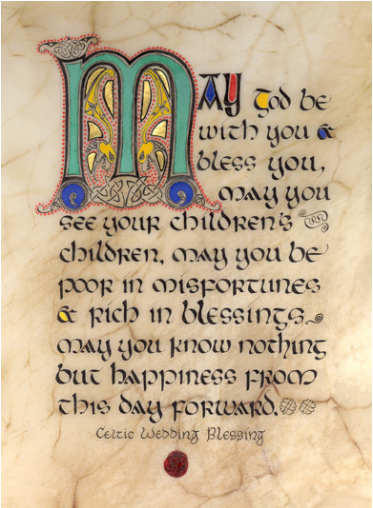 MAY God be
with you &
bless you,
may you
see your children's
children, may you be
poor in misfortunes
& rich in blessings.
may you know nothing
but happiness from
this day forward.
Celtic Wedding Blessing